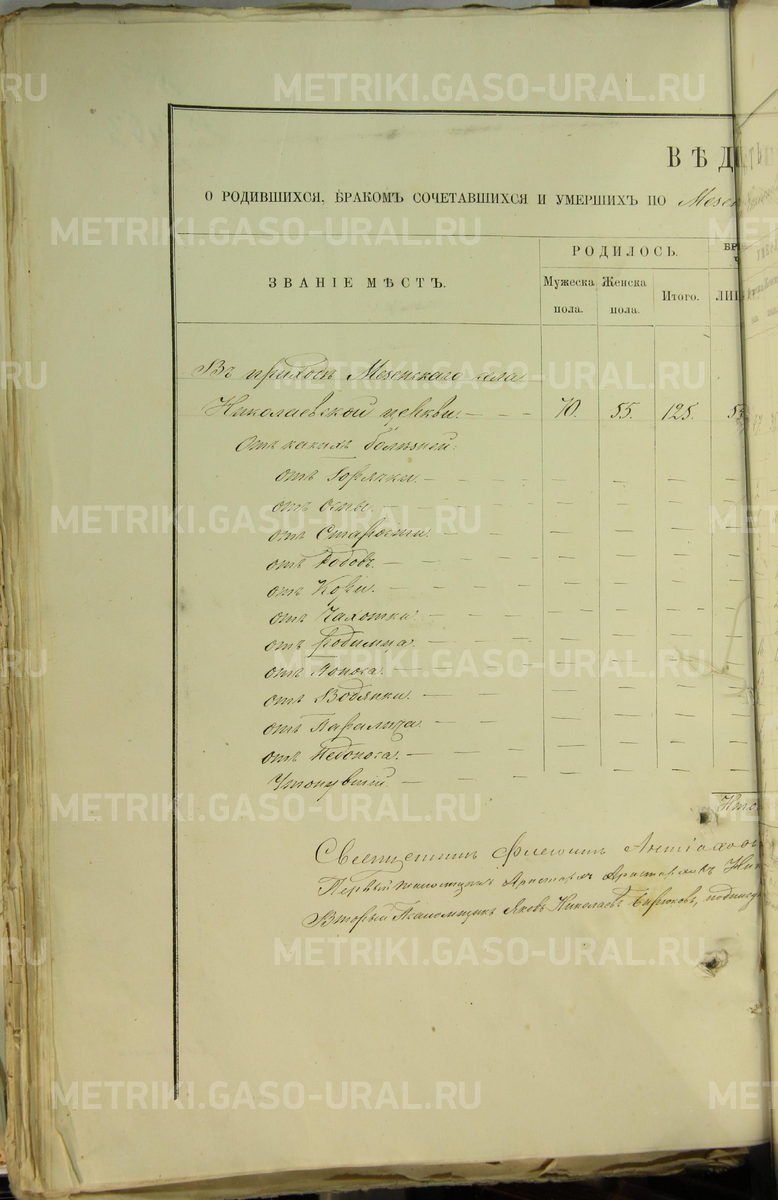 METRIKI.GASO-URAL.RU
ВѢД
О РОДИВШИХСЯ, БРАКОМЪ СОЧЕТАВШИХСЯ И УМЕРШИХЪ ПО Мезен
ЗВАНІЕ МѢСТЪ.
РОДИЛОСЬ.
БР
Мужеска пола.
Женска пола.
Итого.
ЛИ
Въ приходѣ Мезенскаго села
Николаевской церкви. — — 70. 55. 125. 5
Отъ какихъ болѣзней:
отъ Горячки. —
отъ Оспы. —
отъ Старости. —
отъ Родовъ. —
отъ Кори. —
отъ Чахотки. —
отъ Родимца. —
отъ Поноса. —
отъ Водянки. —
отъ Паралича. —
отъ Недоноса. —
Утонувшій. —
Ито
Священникъ Флегонтъ
Первый Псаломщикъ
Второй Псаломщикъ Яковъ Николаевъ Бирюковъ,